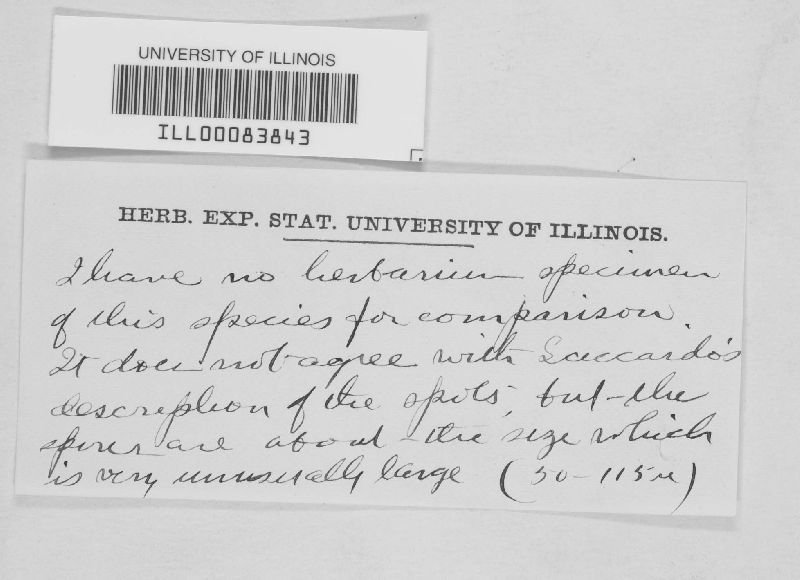 UNIVERSITY OF ILLINOIS
ILL00083843
HERB. EXP. STAT. UNIVERSITY OF ILLINOIS.
I have no herbarium specimen
of this species for comparison.
It does not agree with Saccardo's
description of the spots, but the
spores are about the size which
is very unusually large (50-115µ)